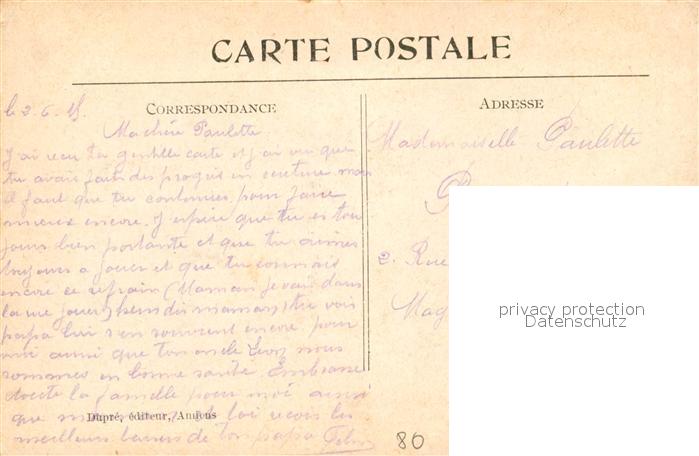 CARTE POSTALE
CORRESPONDANCE
ADRESSE
le 2.6.15.
Ma chère Paulette
J'ai recu ta gentille carte et j'ai vu que
tu avais fait des progrès en ecriture mais
il faut que tu continues pour faire
mieux encore. J'espère que tu es tou
jours bien portante et que tu aimes
toujours a jouer et que tu connais
encore ce refrain (Maman je vais dans
la rue jouer) hein dis maman) tu vois
papa lui s'en souvient encore pour
moi ainsi que ton oncle nous
sommes en bonne santé. Embrasse
toute la famille pour moi ainsi
que toi recois les
meilleurs baisers de ton papa
Dupré, éditeur, Amiens
Mademoiselle Paulette
2. Rue
Mag
80
privacy protection
Datenschutz